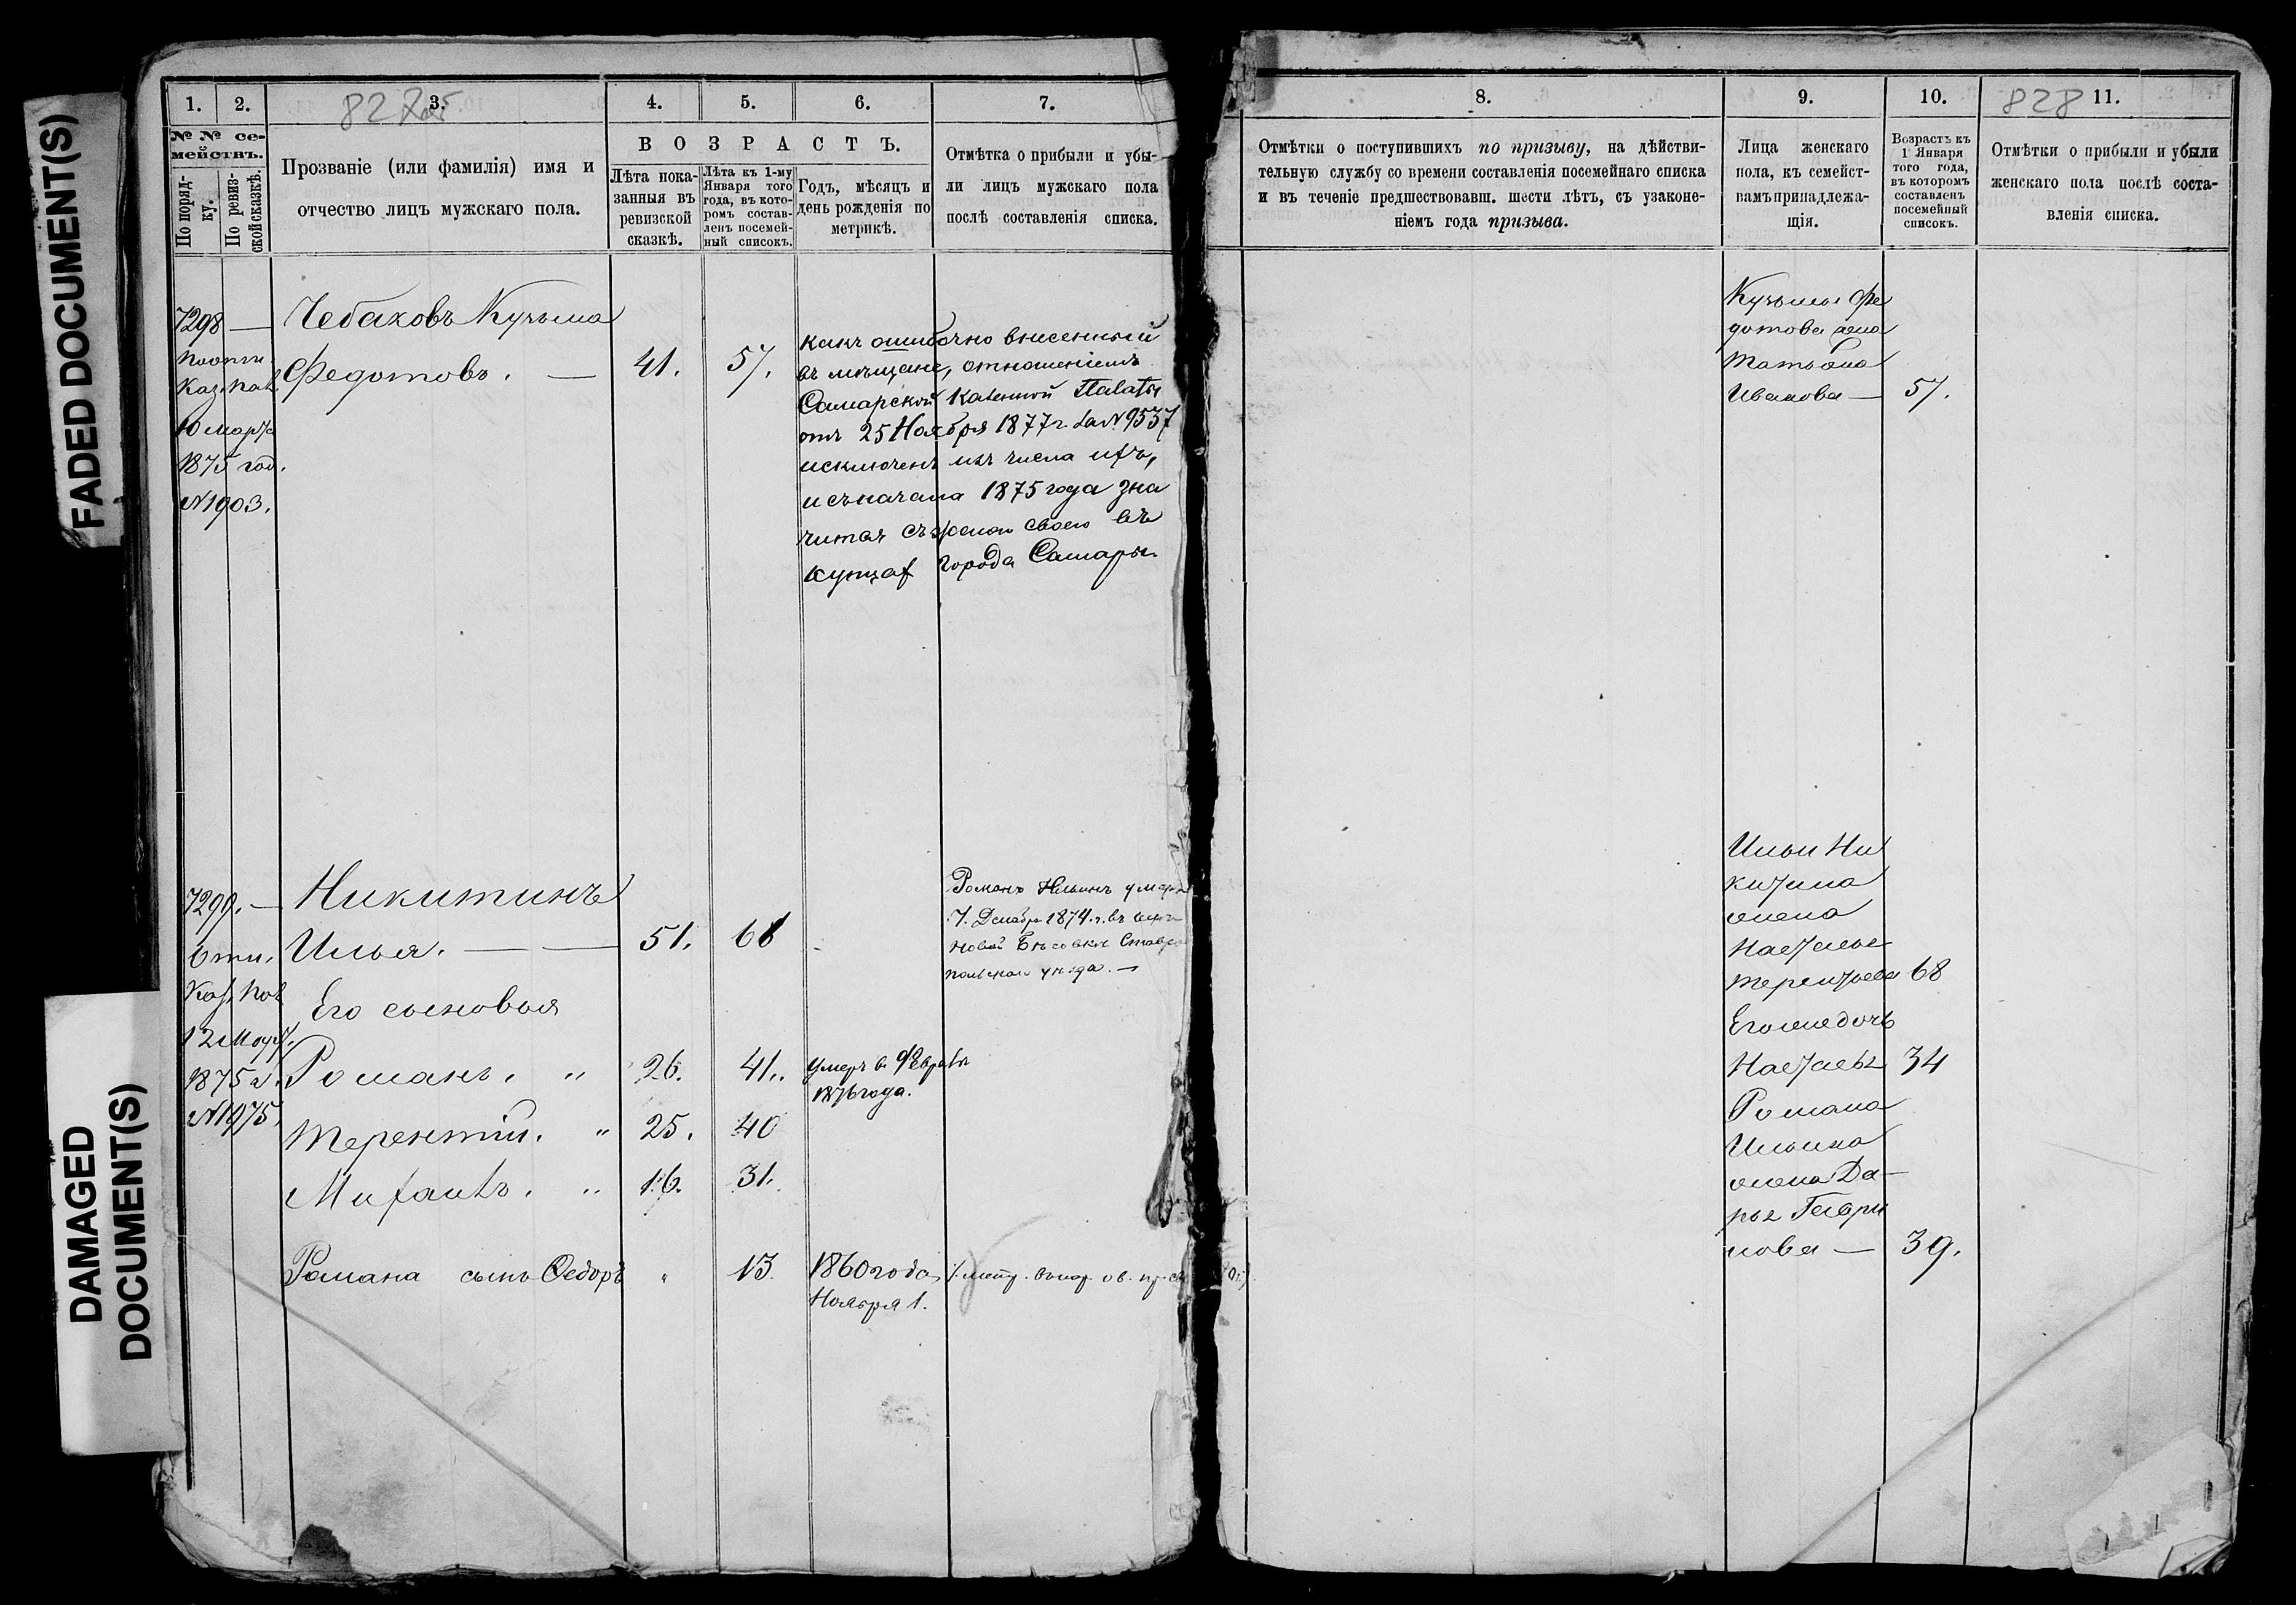 FADED DOCUMENT(S)
DAMAGED
DOCUMENT(S)
1. 2. 3. 4. 5. 6. 7.
827
№ № се-
мействъ.
По поряд-
ку.
По ревиз-
ской сказкѣ.
Прозваніе (или фамилія) имя и
отчество лицъ мужскаго пола.
ВОЗРАСТЪ.
Лѣта пока-
занныя въ
ревизской
сказкѣ.
Лѣта къ 1-му
Января того
года, въ кото-
ромъ состав-
ленъ посемей-
ный списокъ.
Годъ, мѣсяцъ и
день рожденія по
метрикѣ.
Отмѣтка о прибыли и убы-
ли лицъ мужскаго пола
послѣ составленія списка.
7298 —
Каз. Пал.
10 марта
1875 год.
№ 1903.
Чебаковъ Кузьма
Федотовъ. — 41. 57.
какъ ошибочно внесенный
въ мѣщане, отношеніемъ
Самарской Казенной Палаты
отъ 25 Ноября 1877 г. за № 9537
исключенъ изъ числа ихъ,
и съ начала 1875 года зна
читая съ женою своею въ
купцах города Самары.
7299. —
отн.
Каз. Пал
12 Март.
1875 г.
№ 1975.
Никитинъ
Илья. — — 51. 66
Романъ Ильинъ умеръ
7. Декабря 1874. г. въ
Новой Бѣсовкѣ Ставро
польскаго уѣзда. —
Его сыновья
Романъ. " 26. 41.
умеръ въ Февралѣ
1876 года.
Терентій. " 25. 40
Михаилъ. " 16. 31.
Романа сынъ Федоръ " 13. 1860 года
Ноября 1.
8. 9. 10. 11.
828
Отмѣтки о поступившихъ по призыву, на дѣйстви-
тельную службу со времени составленія посемейнаго списка
и въ теченіе предшествовавш. шести лѣтъ, съ узаконе-
ніемъ года призыва.
Лица женскаго
пола, къ семейст-
вамъ принадлежа-
щія.
Возрастъ къ
1 Января
того года,
въ которомъ
составленъ
посемейный
списокъ.
Отмѣтки о прибыли и убыли
женскаго пола послѣ соста-
вленія списка.
Кузьмы Фе
дотова жена
Татьяна
Иванова — 57.
Ильи Ни
китина
жена
Настасья
Терентьева 68
Его же дочь
Настасья 34
Романа
Ильина
жена Да-
рья Гаври
лова — 39.